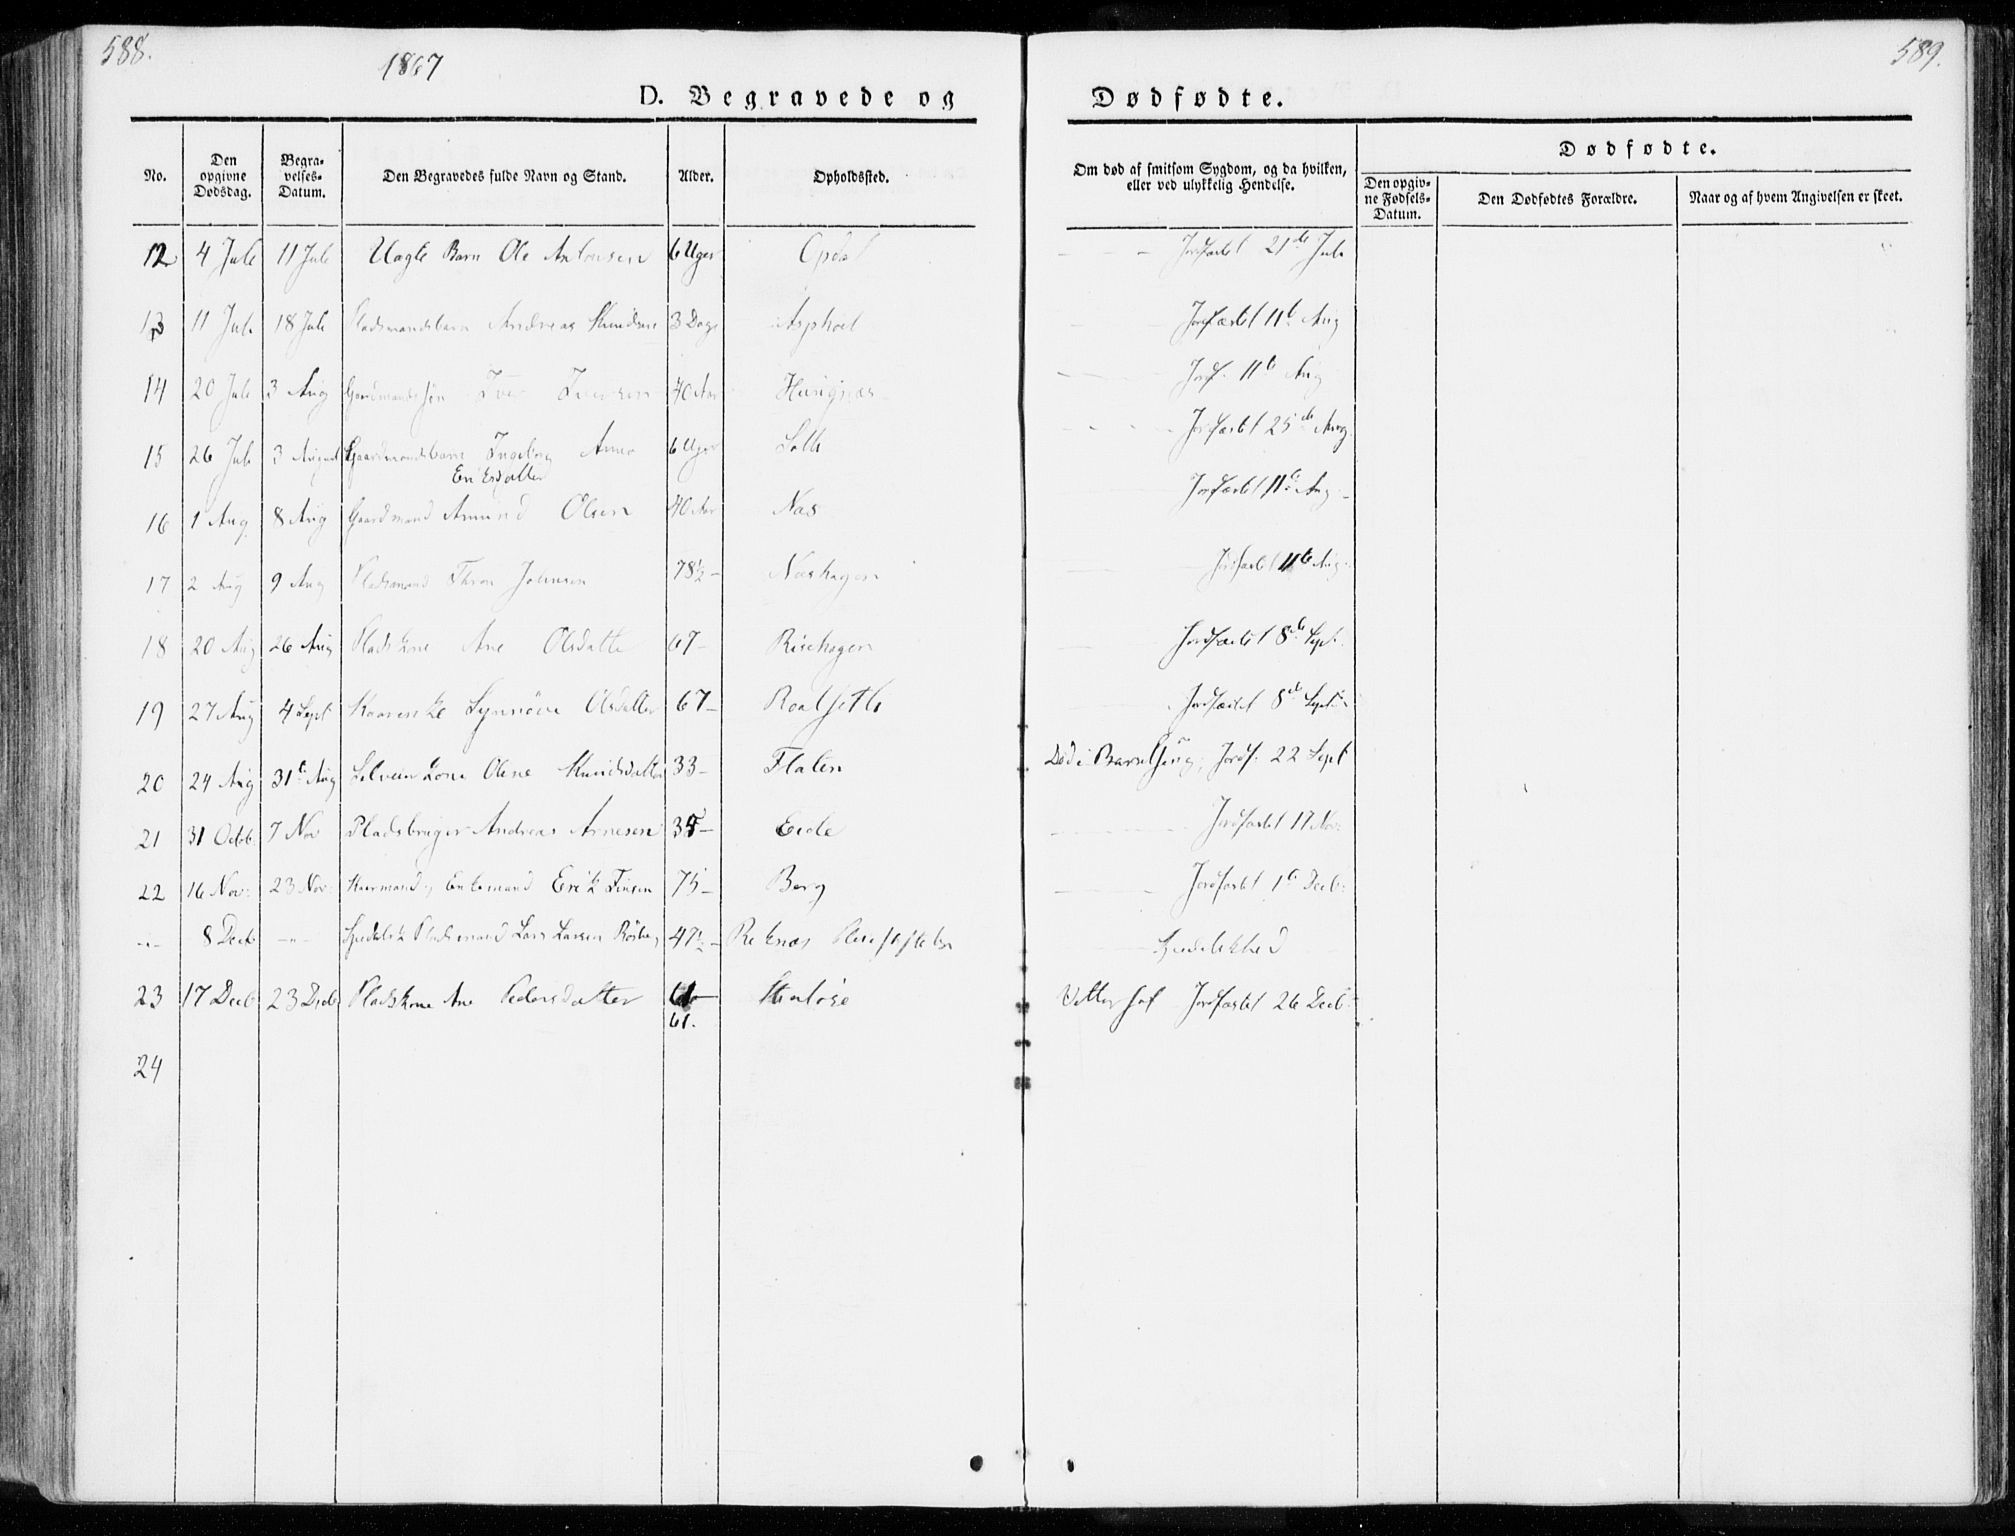 588.
589.
1867
D. Begravede og Dødfødte.
No.
Den opgivne Dødsdag.
Begravelses-Datum.
Den Begravedes fulde Navn og Stand.
Alder.
Opholdssted.
Om død af smitsom Sygdom, og da hvilken, eller ved ulykkelig Hendelse.
Dødfødte.
Den opgivne Fødsels-Datum.
Den Dødfødtes Forældre.
Naar og af hvem Angivelsen er skeet.
12 4 Juli 11 Juli Uægte Barn Ole Antonsen 6 Uger Opdal Jordfæstet 21de Juli
13 11 Juli 18 Juli Pladsmandsbarn Andreas Knudsen 3 Dage Asphoel Jordfæstet 11te Aug
14 20 Juli 3 Aug Gaardmandssøn Iver Iversen 40 Aar Jordf. 11te Aug
15 26 Juli 3 August Gaardmandsbarn Ingeborg Anne 6 Uger Jordfæstet 25de Aug
Eriksdatter
16 1 Aug. 8 Aug Gaardmand Amund Olsen 40 Aar Næs Jordfæstet 11te Aug
17 2 Aug 9 Aug Pladsmand Thron Johnsen 78½ Næshagen Jordfæstet 11te Aug
18 20 Aug 26 Aug Pladskone Ane Olsdatter 67 Risehagen Jordfæstet 8de Sept.
19 27 Aug 4 Sept Synnøve Olsdatter 67 Roalseth Jordfæstet 8de Sept
20 24 Aug 31te Aug Kone Olene Knudsdatter 33 Flaten Død i Barselseng, Jordf. 22 Sept
21 31 Octob. 7 Nov Pladsbruger Andreas Arnesen Eide Jordfæstet 17 Nov:
22 16 Nov: 23 Nov: Kaarmand, Enkemand Erik Finsen 75 Berg Jordfæstet 1te Decb:
8 Decb Spedalsk Pladsmand Lars Larsen 47½ Reknæs Pleiestiftelse Spedalskhed
23 17 Decb 23 Decb Pladskone Ane Pedersdatter 61 Stenløse Jordfæstet 26 Decb:
61.
24